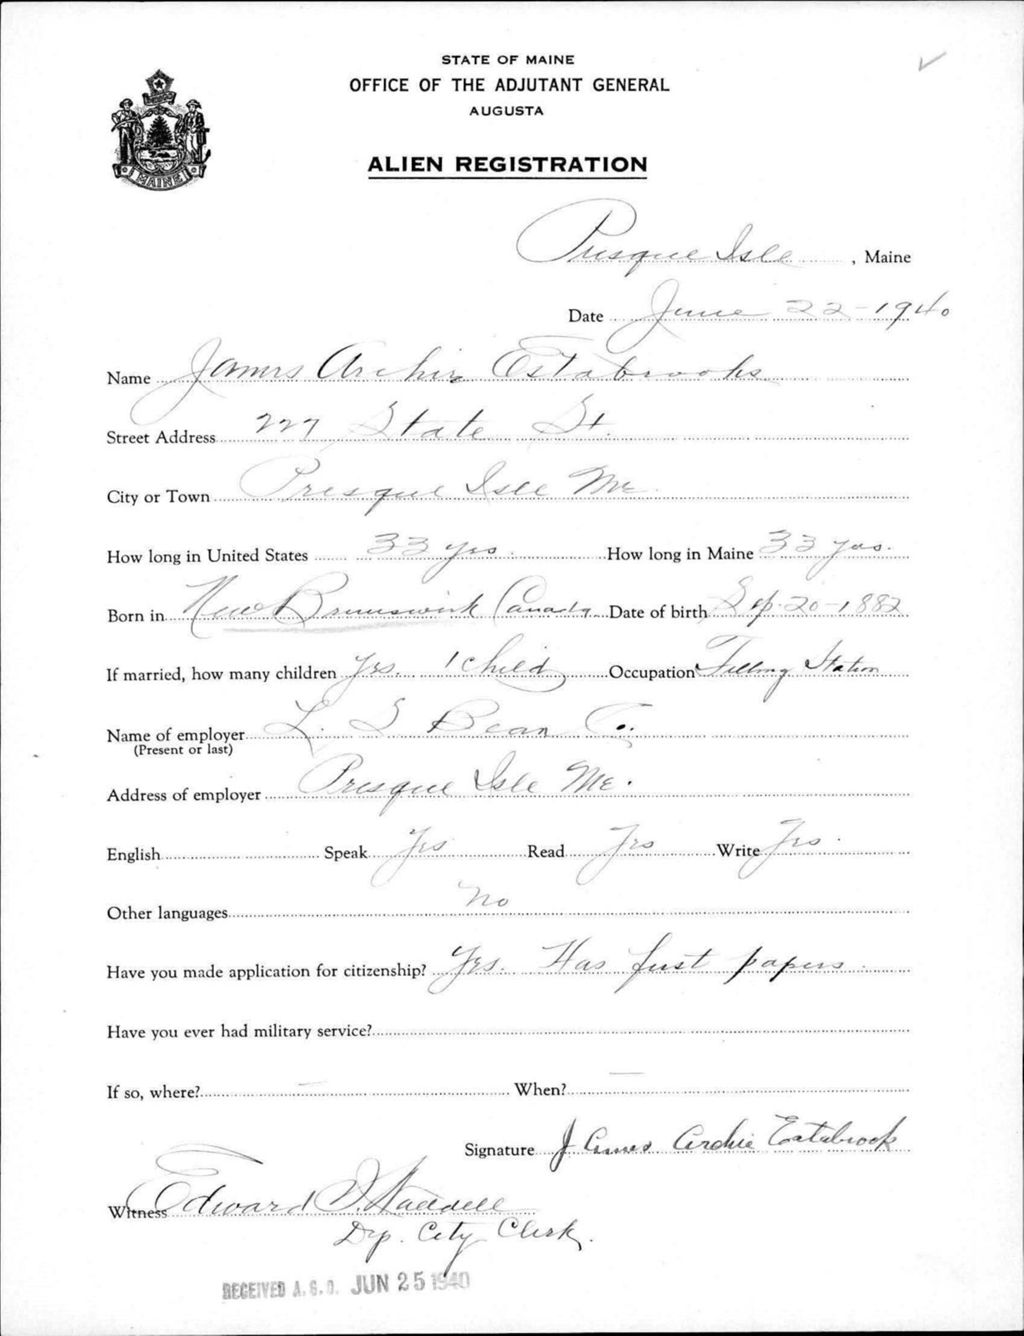 STATE OF MAINE
OFFICE OF THE ADJUTANT GENERAL
AUGUSTA
ALIEN REGISTRATION
MAINE
Presque Isle, Maine
Date June 22-1940
Name James Archie Estabrooks
Street Address 227 State St.
City or Town Presque Isle Me.
How long in United States 33 yrs. How long in Maine 33 yrs.
Born in New Brunswick Canada Date of birth Sep. 20-1882
If married, how many children Yes. 1 child Occupation Filling Station
Name of employer L. S. Bean Co.
(Present or last)
Address of employer Presque Isle Me.
English Speak Yes Read Yes Write Yes.
Other languages No
Have you made application for citizenship? Yes. Has first papers
Have you ever had military service?
If so, where? — When? —
Signature James Archie Estabrook
Witness Edward J. Waddell
Dep. City Clerk.
RECEIVED A.G.O. JUN 25 1940